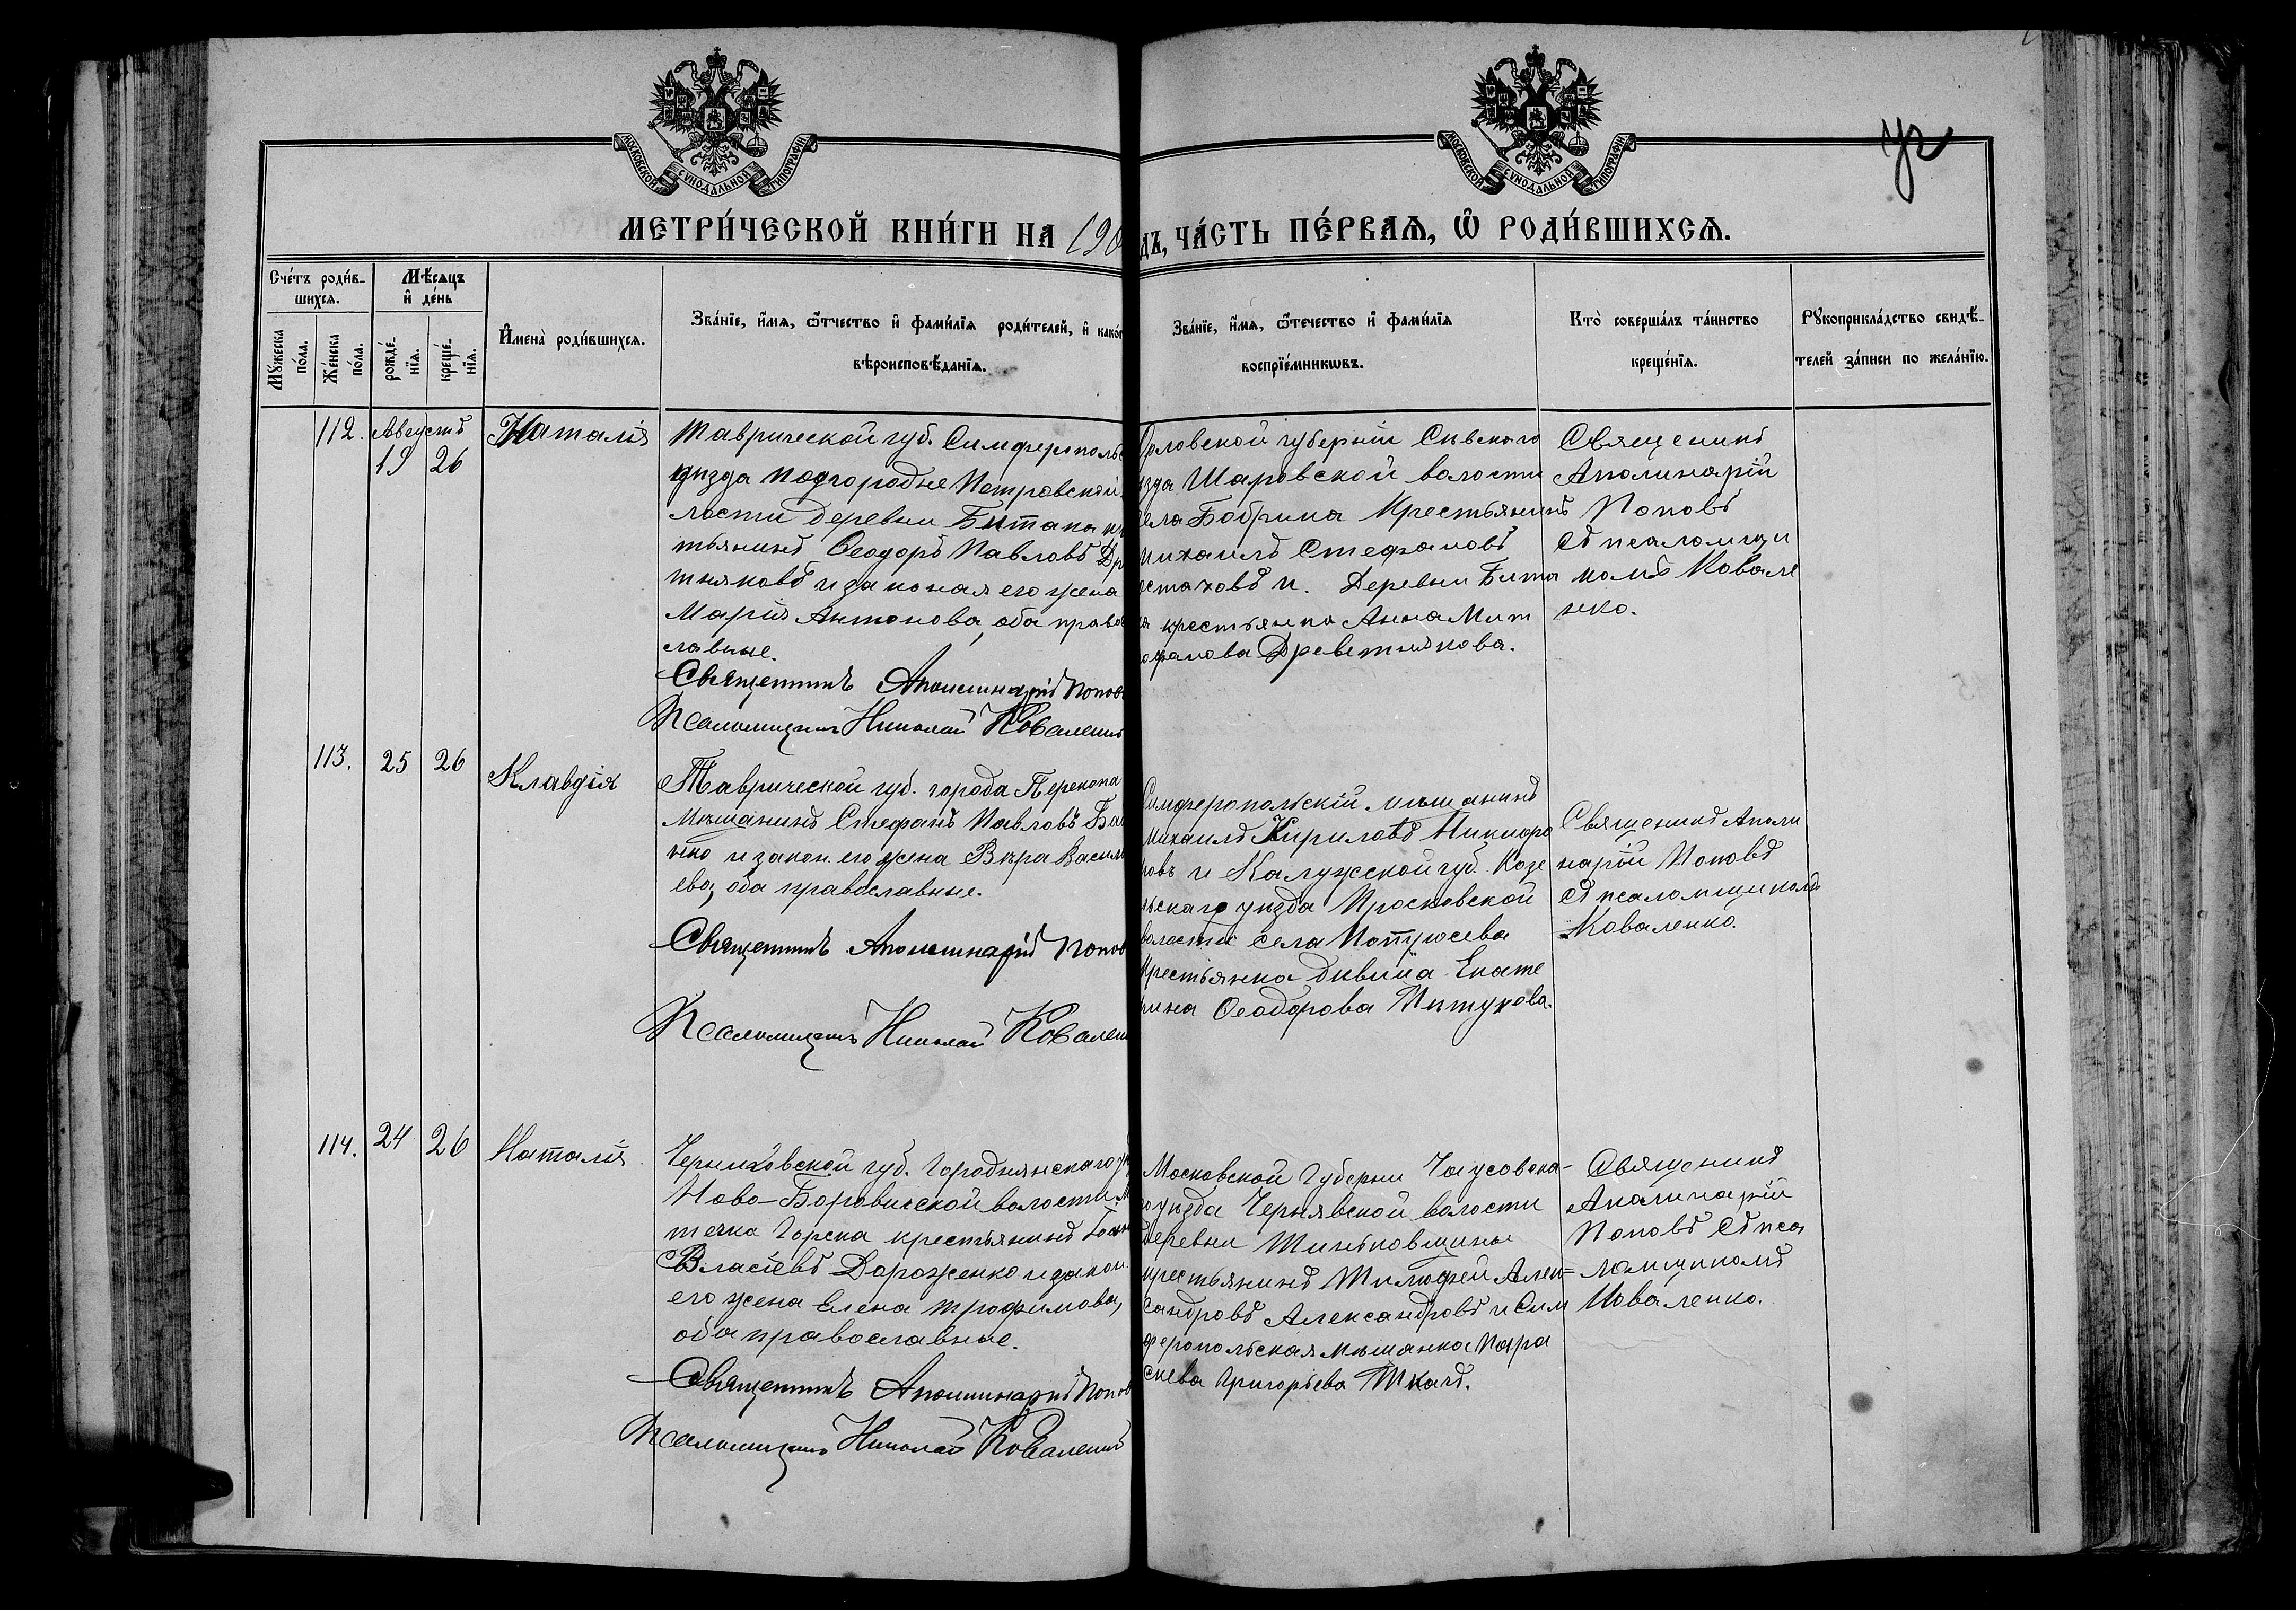 МОСКОВСКОЙ СѴНОДАЛЬНОЙ ТИПОГРАФІИ
МОСКОВСКОЙ СѴНОДАЛЬНОЙ ТИПОГРАФІИ
МЕТРИ́ЧЕСКОЙ КНИ́ГИ НА 190
ДЪ, ЧА́СТЬ ПЕ́РВАЯ, Ѡ РОДИ́ВШИХСЯ.
Сче́тъ роди́в-
шихся.
Мꙋжеска по́ла.
Же́нска по́ла.
Мѣ́сяцъ
и҆ де́нь
рожде́-
нїя.
креще́-
нїя.
И҆мена̀ роди́вшихся.
Зва́нїе, и҆́мя, ѻ҆́тчество и҆ фами́лїя роди́телей, и҆ како́г
вѣроисповѣ́данїя.
Зва́нїе, и҆́мя, ѻ҆те́чество и҆ фами́лїя
воспрїе́мникѡвъ.
Кто̀ соверша́лъ та́инство
креще́нїя.
Рꙋкоприкла́дство свидѣ́-
телей за́писи по жела́нїю.
112. Августъ
19 26
Наталія
Таврической губ. Симферопольс
уѣзда Подгородне Петровской
лости деревни Битака кр
тьянинъ Ѳеодоръ Павловъ Др
тняковъ и законая его жена
Марія Антонова, оба право
славные.
Священникъ Аполинарій Попов
Псаломщикъ Николай Коваленко
Орловской губерніи Сѣвскаго
ѣзда Шаровской волости
села Бобрика Крестьянинъ
Михаилъ Стефановъ
остаховъ и. Деревни Бита
ка крестьянка Анна Мит
офанова Древетнякова.
Священикъ
Аполинарій
Поповъ
съ псаломщи
комъ Ковале
нко.
113. 25 26
Клавдія
Таврической губ. города Перекопа
Мѣщанинъ Стефанъ Павловъ Ба
нко и закон. его жена Вѣра Василь
ева, оба православные.
Священникъ Аполинарій Попов
Псаломщикъ Николай Ковален
Симферопольскій мѣщанинъ
Михаилъ Кириловъ Никифо
ровъ и Калужской губ. Козе
льскаго уѣзда Просковской
волости села Потросева
Крестьянка дѣвица Екате
рина Ѳеодорова Питукова.
Священикъ Аполи
нарій Поповъ
съ псаломщикомъ
Коваленко.
114. 24 26
Наталія
Черниговской губ. Городнянскаго у
Ново-Боровической волости м
течка Горска крестьянинъ
Власіевъ Дорошенко и закон.
его жена Елена Трофимова,
оба православные.
Священникъ Аполинарій Попов
Псаломщикъ Николай Коваленко
Московской Губерни
го уѣзда Чернявской волости
деревни
крестьянинъ Тимофей Алек=
сандровъ Александровъ и Сим
феропольская мѣщанка Пара
скева Григорьева Ткачъ.
Священикъ
Аполинарій
Поповъ съ пса
ломщикомъ
Коваленко.